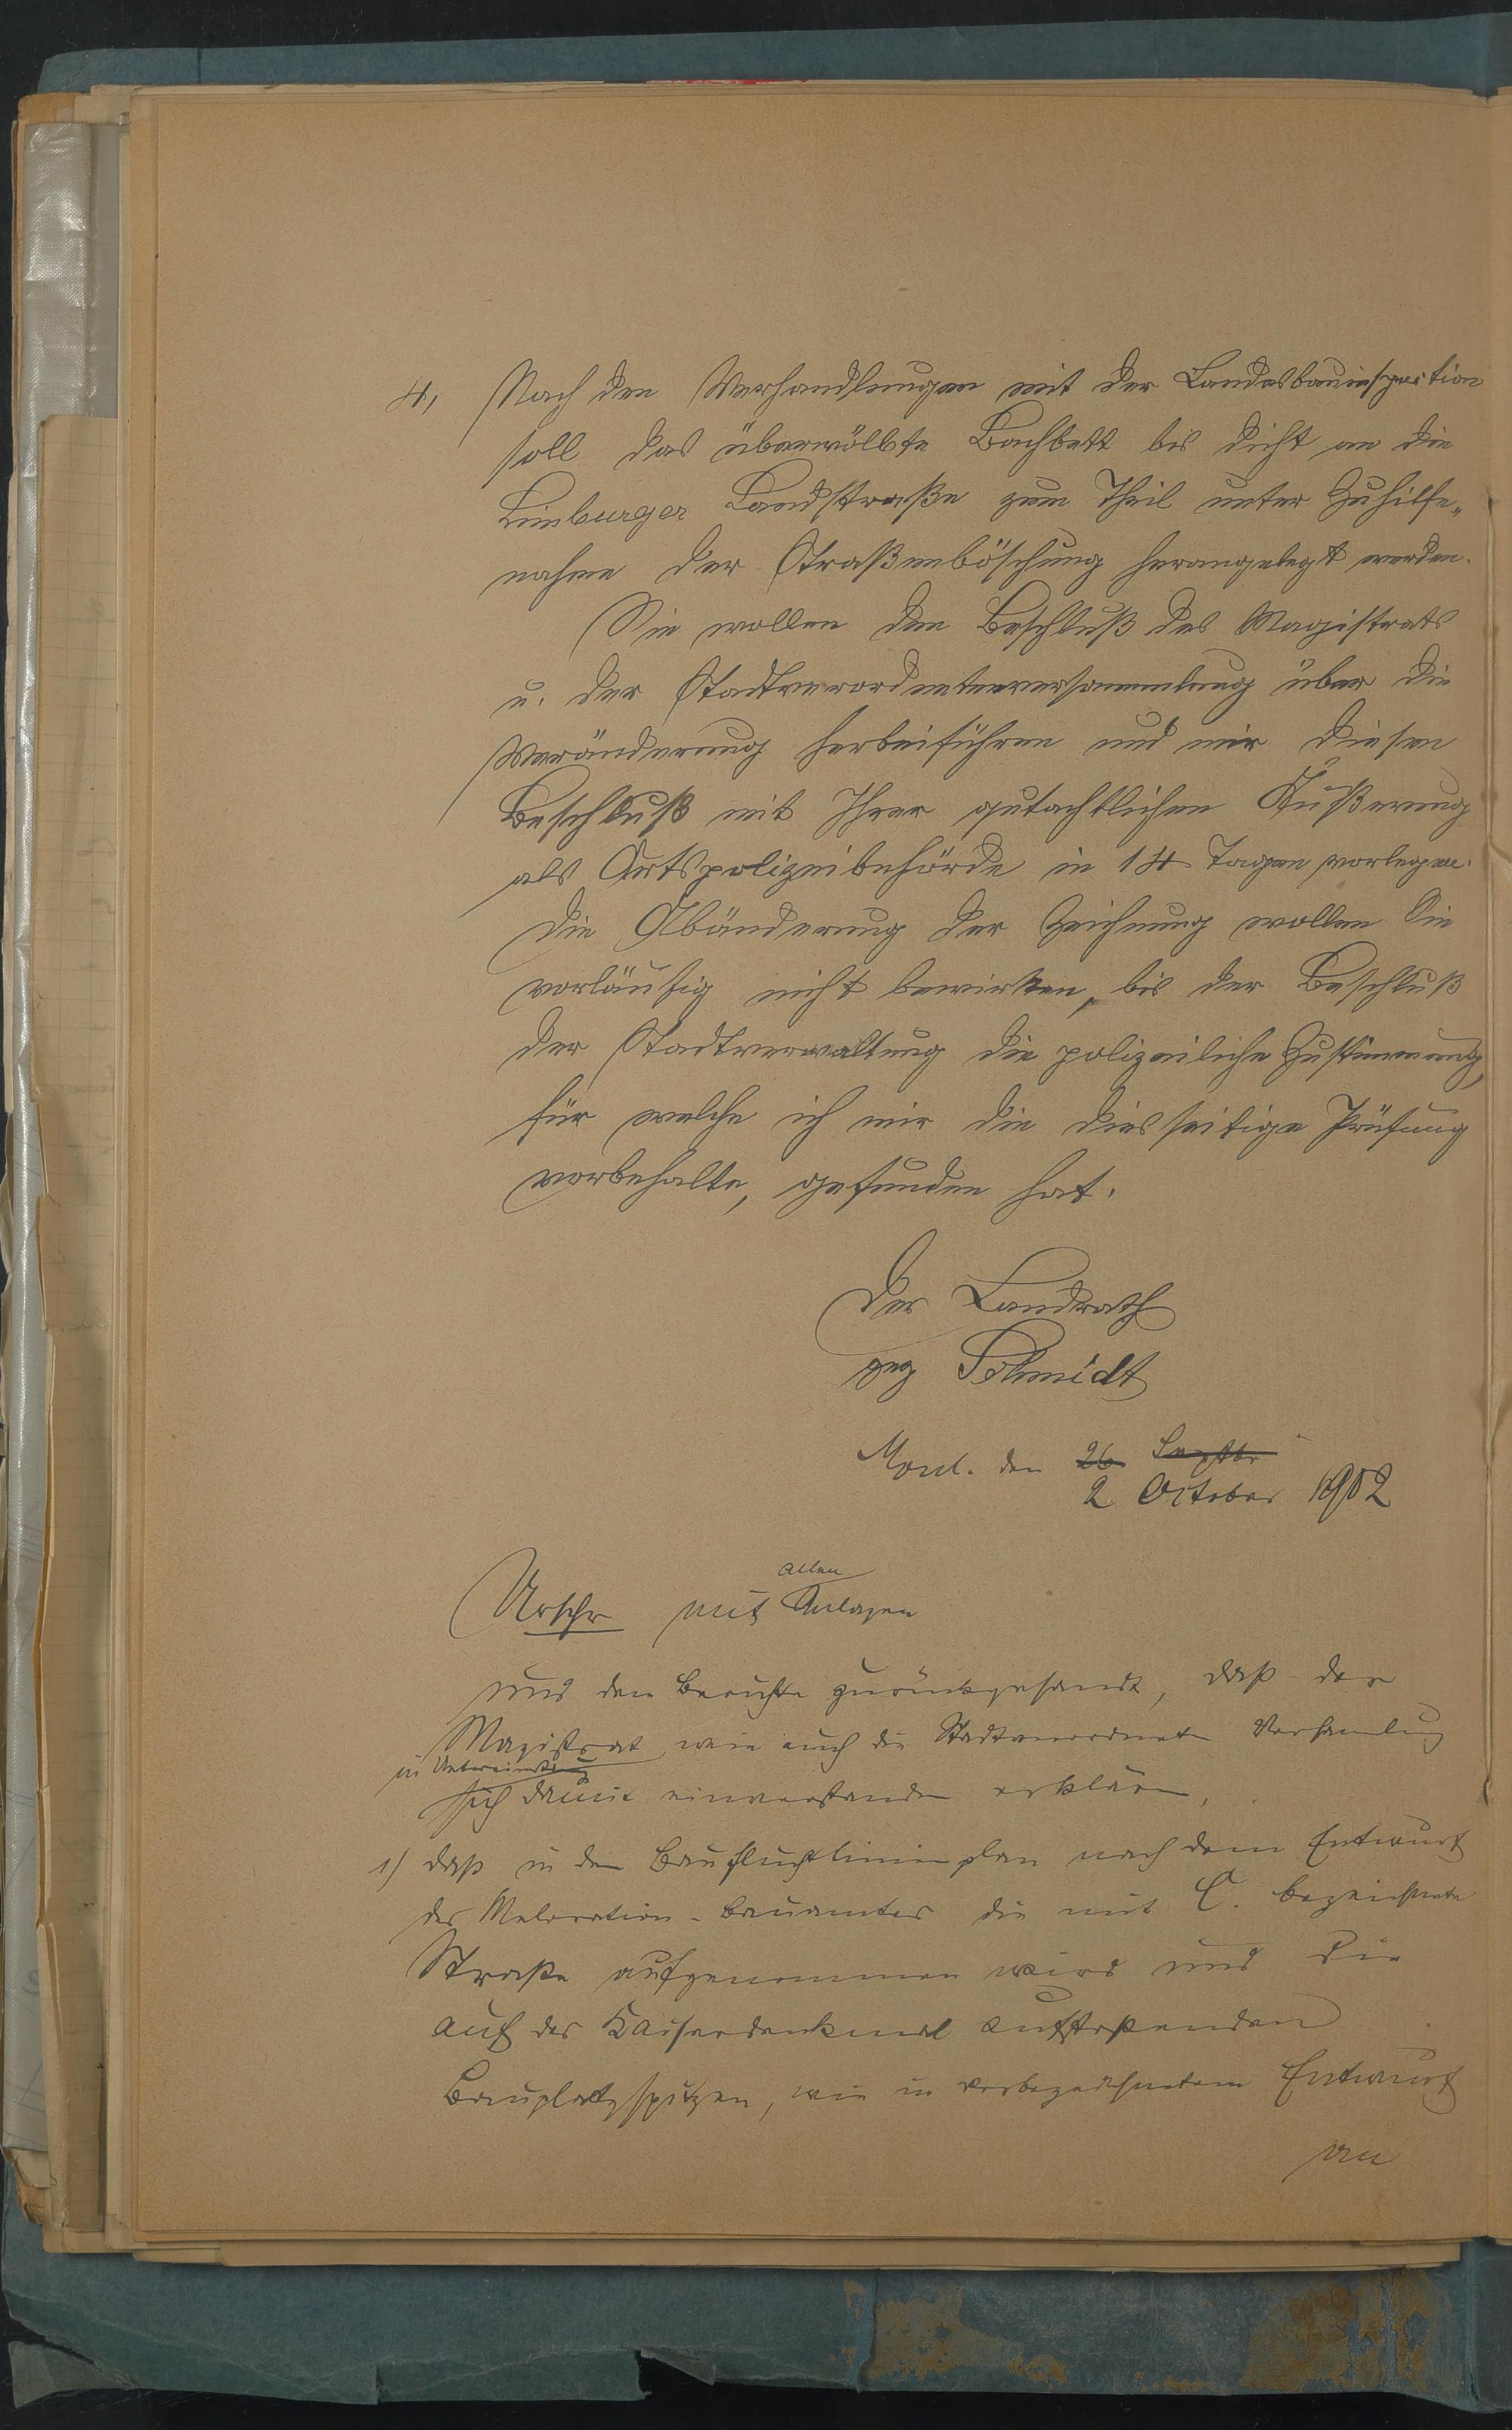 4, Nach den Verhandlungen mit der Landesbauinspection
soll das überwölbte Bachbett bis dicht an die
Limburger Landstraße zum Theil unter Zuhilfe„
nahme der Straßenböschung herangelegt werden.
Sie wollen den Beschluß des Magistrats
u. der Stadtverordnetenversammlung über die
Veränderung herbeiführen und mir diesen
Beschluß mit Ihrer gutachtlichen Äußerung
als Ortspolizeibehörde in 14 Tagen vorlegen.
Die Abänderung der Zeichnung wollen Sie
vorläufig nicht bewirken, bis der Beschluß
der Stadtverwaltung die polizeiliche Zustimmung,
für welche ich mir die diesseitige Prüfung
vorbehalte, gefunden hat.
Der Landrath
gez Schmidt
den 26 Septbr
2 October 1902
allen
Urschr mit Anlagen
und dem Berichte zurückgesandt, daß der
Magistrat wie auch die Stadtverordneten Versamlung
in
sich damit einverstanden erklären,
1) daß in den Baufluchtlinienplan nach dem Entwurf
des Meloration-Bauamtes die mit C. bezeichnete
Straße aufgenommen wird und die
auf das Kaiserdenkmal aufstoßenden
Bauplatzspitzen, wie in vorbezeichnetem Entwurf
an